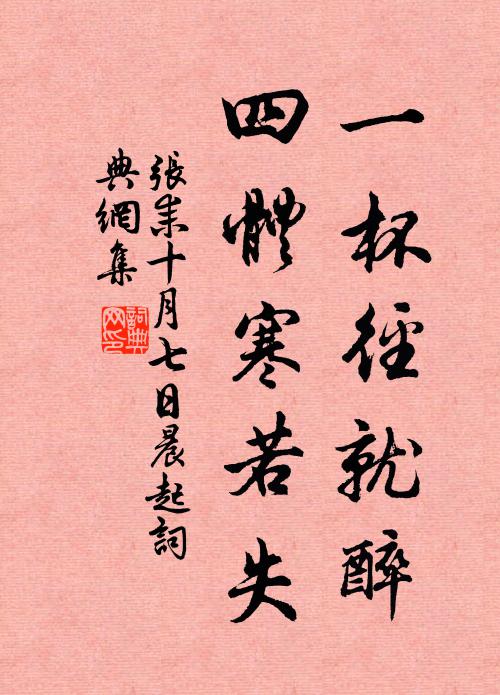 一杯徑就醉
四體寒若失
張耒十月七日晨起詞
典網集
詞典
网印